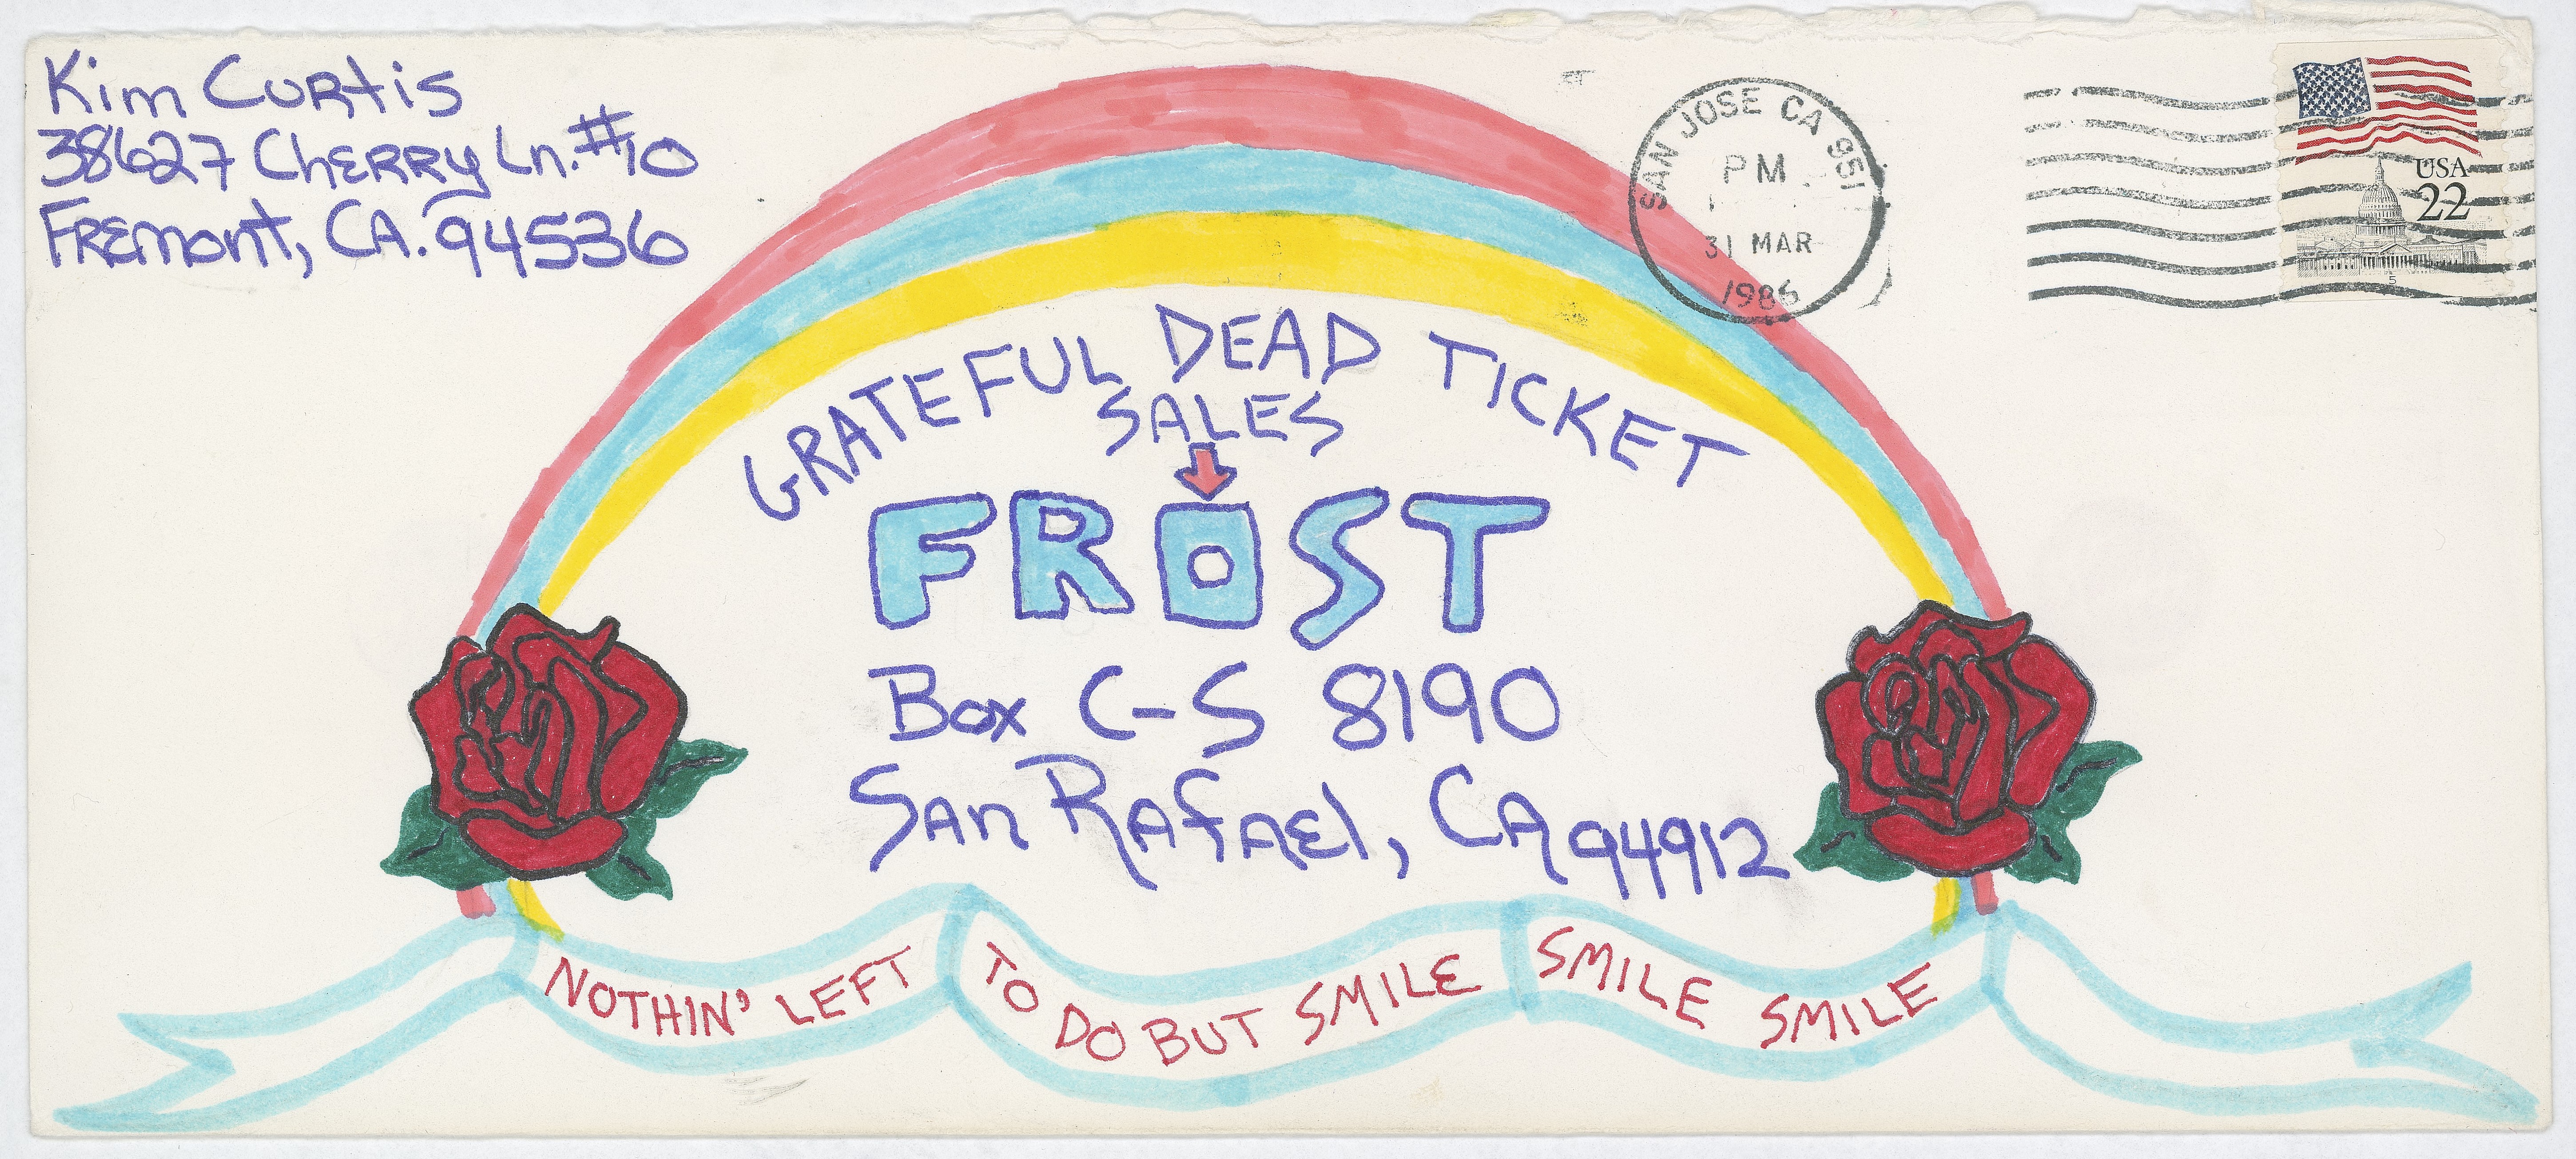 Kim Curtis
38627 Cherry Ln. #10
Fremont, CA. 94536
SAN JOSE CA 951
PM
31 MAR
1986
USA
22
5
GRATEFUL DEAD TICKET
SALES
FROST
Box C-S 8190
San Rafael, CA 94912
NOTHIN' LEFT TO DO BUT SMILE SMILE SMILE